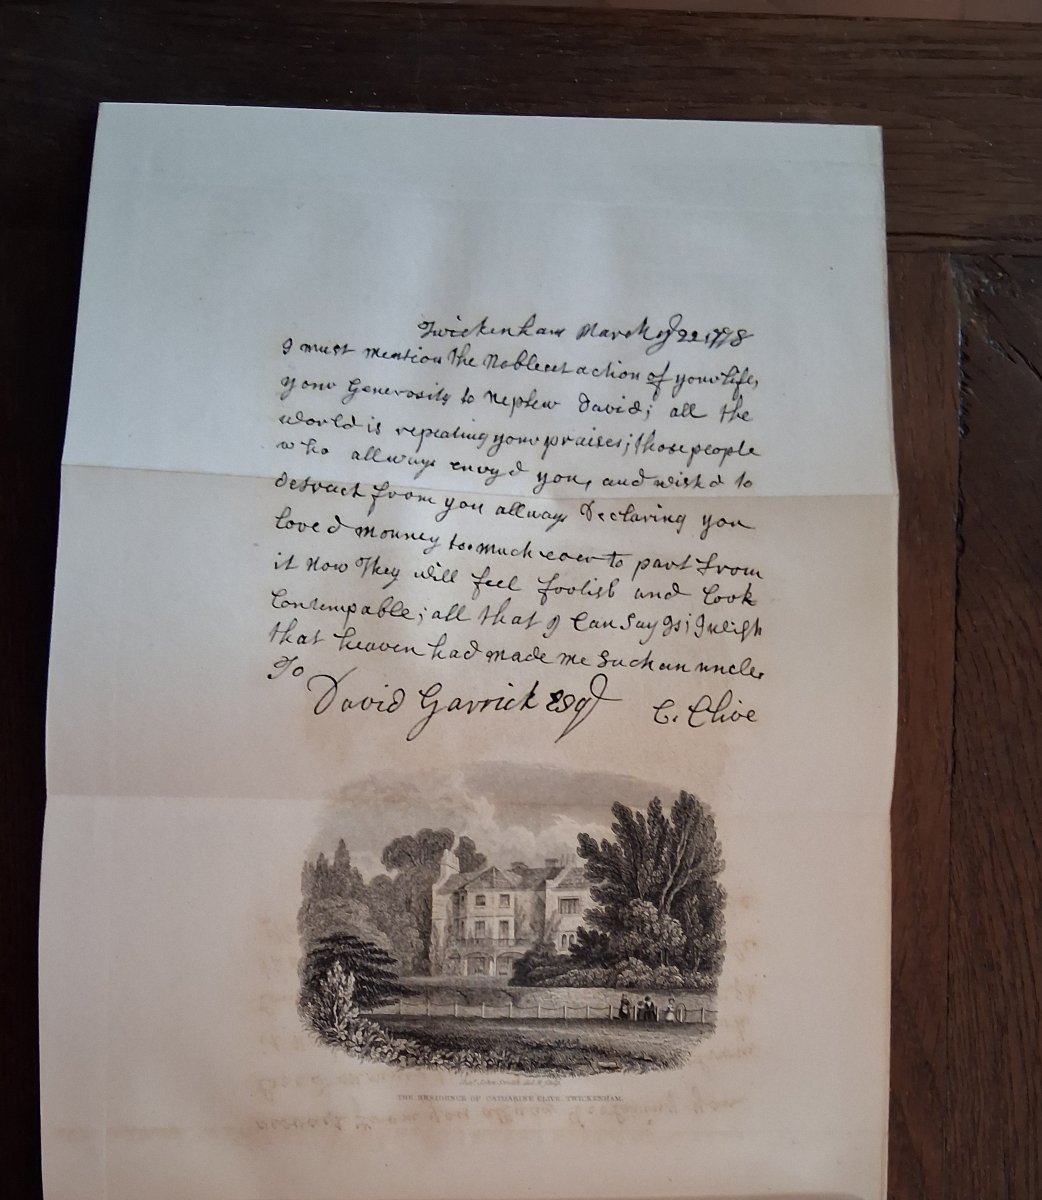 Twickenham March ye 22 1778
I must mention the Noblest action of your life,
your Generosity to Nephew David; all the
world is repeating your praises; those people
who allways envyd you, and wishd to
detract from you allways Declaring you
loved monney too much ever to part from
it Now They will feel foolish and look
Contempable; all that I Can Say Is; I wish
that heaven had made me Such an uncle.
To
David Garrick Esqr C. Clive
THE RESIDENCE OF CATHARINE CLIVE, TWICKENHAM.